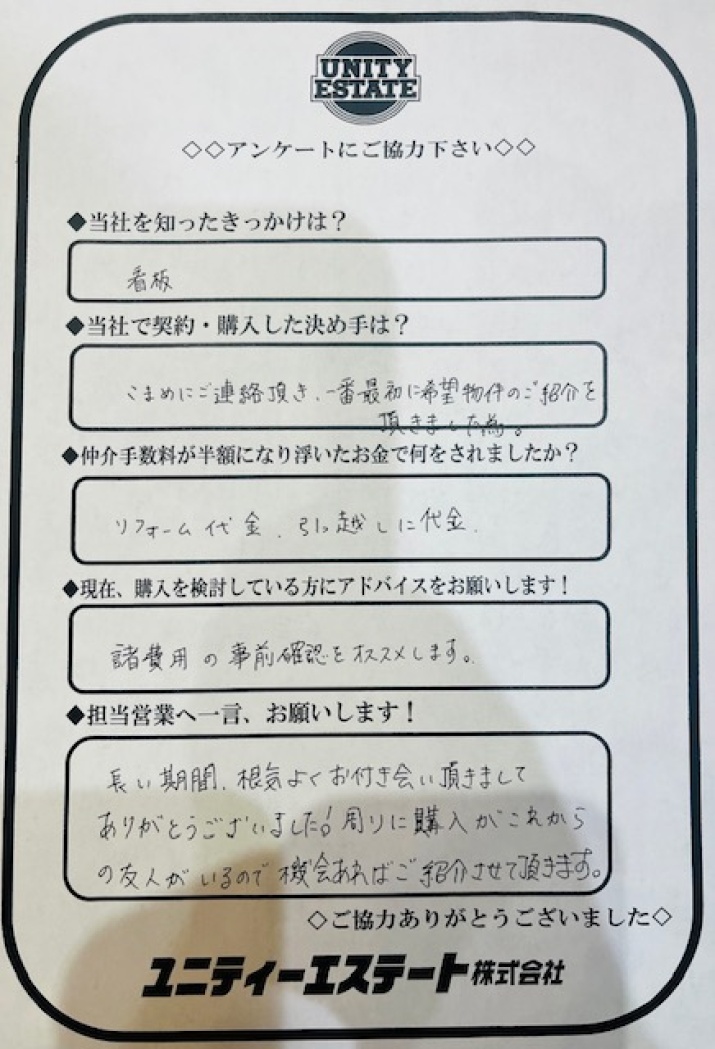 UNITY
ESTATE
◇◇アンケートにご協力下さい◇◇
◆当社を知ったきっかけは？
看板
◆当社で契約・購入した決め手は？
こまめにご連絡頂き、一番最初に希望物件のご紹介を
頂きました為。
◆仲介手数料が半額になり浮いたお金で何をされましたか？
リフォーム代金、引っ越しに代金、
◆現在、購入を検討している方にアドバイスをお願いします！
諸費用の事前確認をオススメします。
◆担当営業へ一言、お願いします！
長い期間、根気よくお付き会い頂きまして
ありがとうございました！周りに購入がこれから
の友人がいるので機会あればご紹介させて頂きます。
◇ご協力ありがとうございました◇
ユニティーエステート株式会社